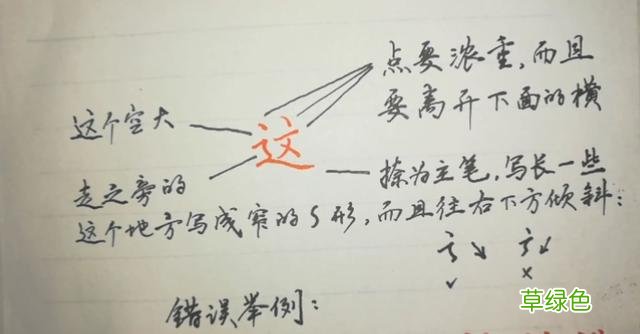 点要浓重,而且
要离开下面的横
这个空大
这
走之旁的
捺为主笔,写长一些
这个地方写成窄的S形,而且往右下方倾斜:
✓ ×
错误举例:
草绿色